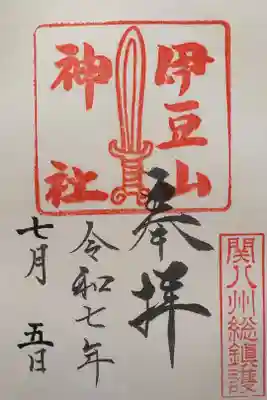 伊豆山
神社
奉拝
令和七年
七月五日
関八州総鎮護